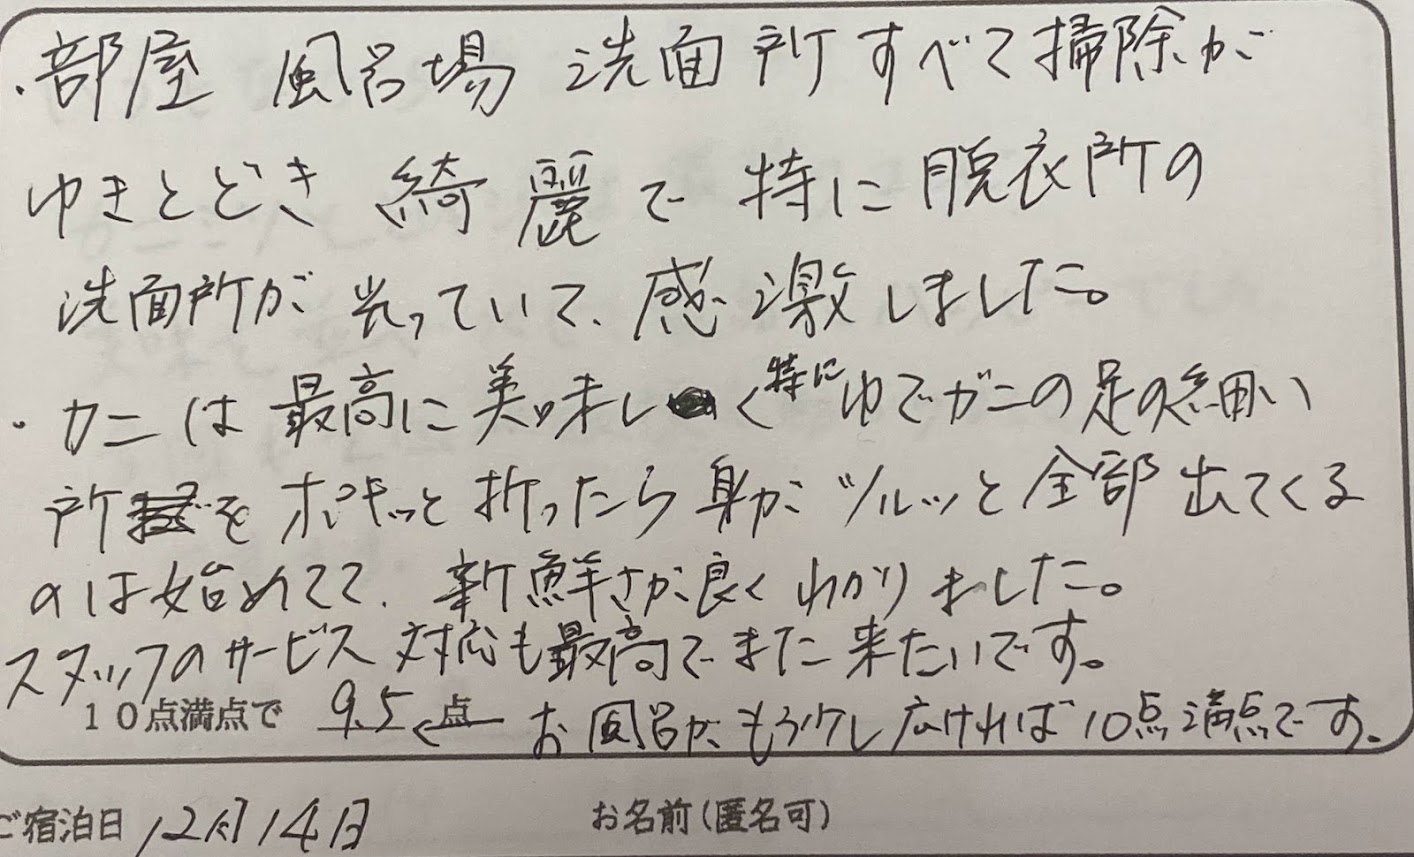 ・部屋 風呂場 洗面所すべて掃除が
ゆきとどき 綺麗で 特に脱衣所の
洗面所が 光っていて、感激しました。
・カニは最高に美味しく特にゆでガニの足の細い
所をポキッと折ったら身がツルッと全部出てくる
のは始めてで、新鮮さが良くわかりました。
スタッフのサービス対応も最高でまた来たいです。
10点満点で 9.5点 ← お風呂がもう少し広ければ10点満点です。
ご宿泊日 12月14日 お名前(匿名可)